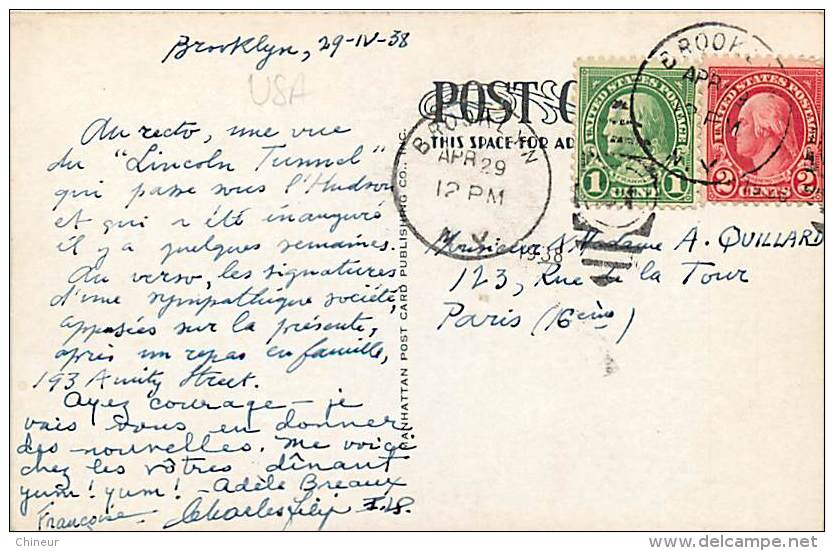 Brooklyn, 29-IV-38
USA
Au recto, une vue
du "Lincoln Tunnel"
qui passe sous l'Hudson
et qui a été inauguré
il y a quelques semaines.
Au verso, les signatures
d'une sympathique société,
apposées sur la présente,
après un repas en famille,
193 Amity Street.
Ayez courage - je
vais vous en donner
des nouvelles. Me voici
chez les vôtres dînant
yum! yum! - Adèle Breaux
Françoise
MANHATTAN POST CARD PUBLISHING CO., INC.
POST C
THIS SPACE FOR AD
BROOKLYN
APR 29
12 PM
N. Y.
1938
UNITED STATES POSTAGE
FRANKLIN
1 CENT 1
BROOKL
APR
PM
N. Y.
UNITED STATES POSTAGE
2 CENTS 2
Monsieur & Madame A. QUILLARD
123, Rue de la Tour
Paris (16ème)
Chineur
delcampe.net